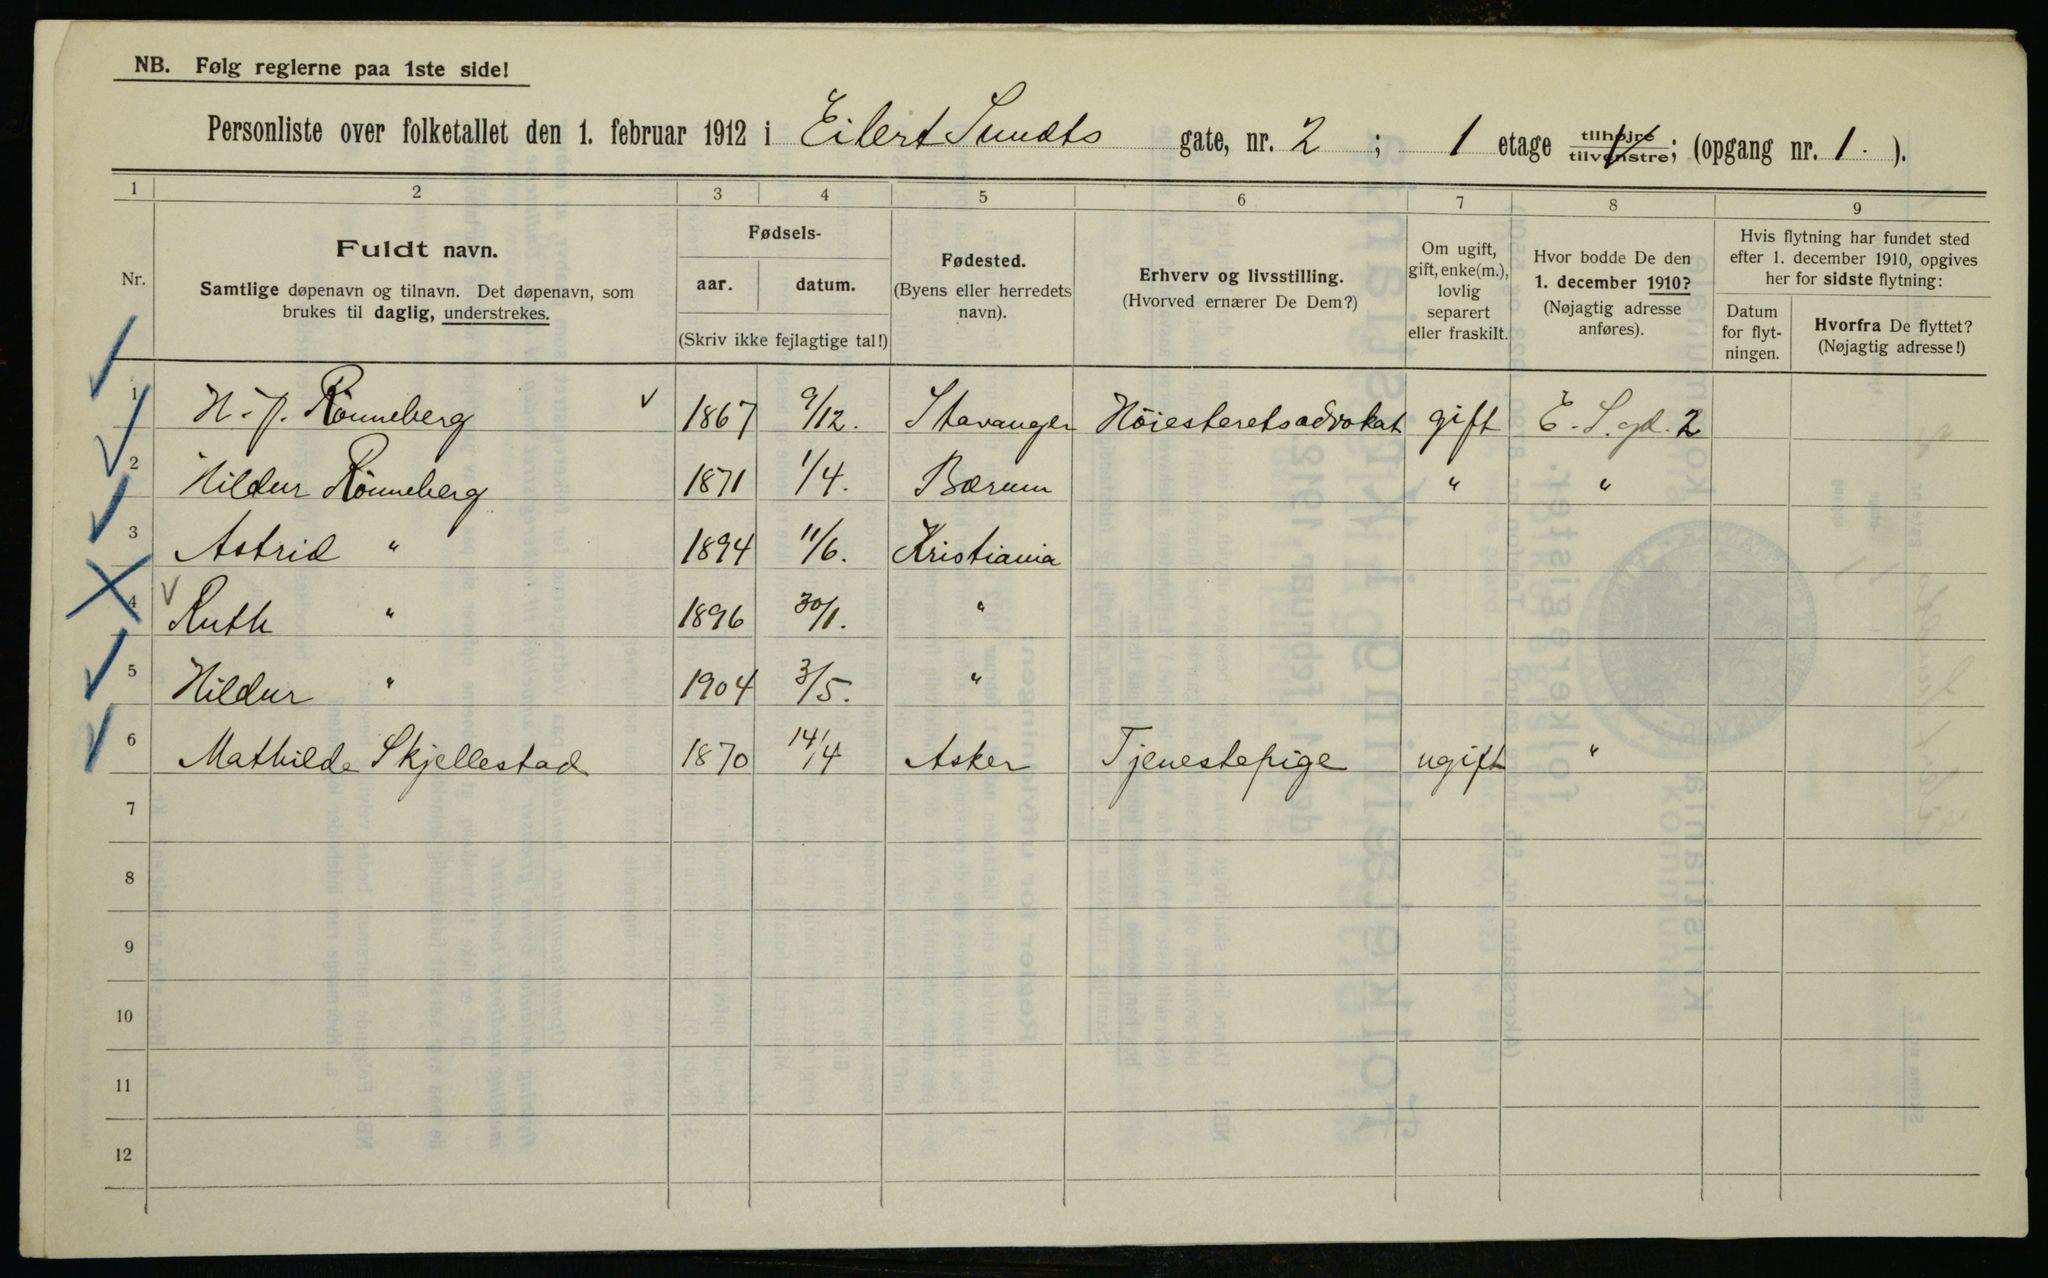 NB. Følg reglerne paa 1ste side!
Personliste over folketallet den 1. februar 1912 i Eilert Sundts gate, nr. 2 ; 1 etage tilhøjre/tilvenstre; (opgang nr. 1. ).
1 2 3 4 5 6 7 8 9
Nr.
Fuldt navn.
Samtlige døpenavn og tilnavn. Det døpenavn, som
brukes til daglig, understrekes.
Fødsels-
aar. datum.
(Skriv ikke fejlagtige tal!)
Fødested.
(Byens eller herredets
navn).
Erhverv og livsstilling.
(Hvorved ernærer De Dem?)
Om ugift,
gift, enke(m.),
lovlig
separert
eller fraskilt.
Hvor bodde De den
1. december 1910?
(Nøjagtig adresse
anføres).
Hvis flytning har fundet sted
efter 1. december 1910, opgives
her for sidste flytning:
Datum
for flyt-
ningen.
Hvorfra De flyttet?
(Nøjagtig adresse!)
1 N. J. Rönneberg 1867 9/12. Stavanger Höiesteretsadvokat gift E. S. gd. 2
2 Hildur Rönneberg 1871 1/4. Bærum " "
3 Astrid " 1894 11/6. Kristiania
4 Ruth " 1896 30/1. "
5 Hildur " 1904 3/5. "
6 Mathilde Skjellestad 1870 14/4 Asker Tjenestepige ugift "
7
8
9
10
11
12